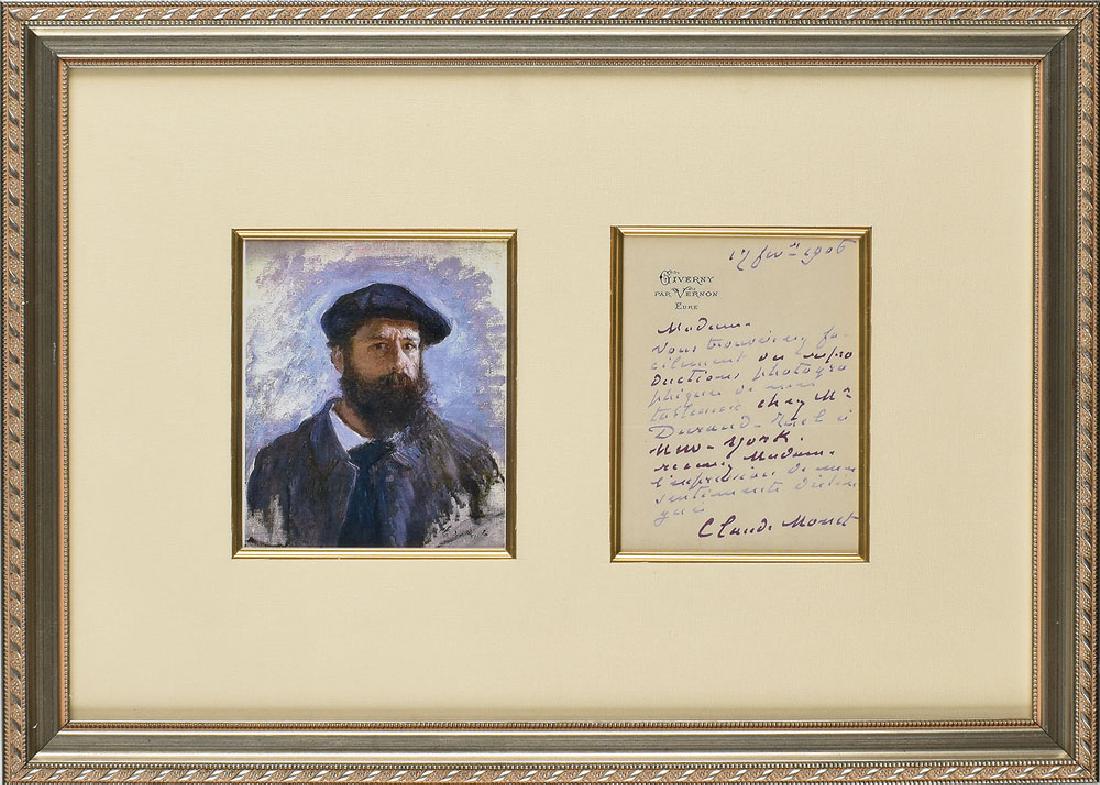 17 fév. 1906
GIVERNY
PAR VERNON
EURE
Madame
Vous trouverez fa-
cilement des repro
ductions photogra
phiques de mes
tableaux chez Mr
Durand-Ruel à
New-York.
recevez Madame
l'expression de mes
sentiments distin
gués
Claude Monet